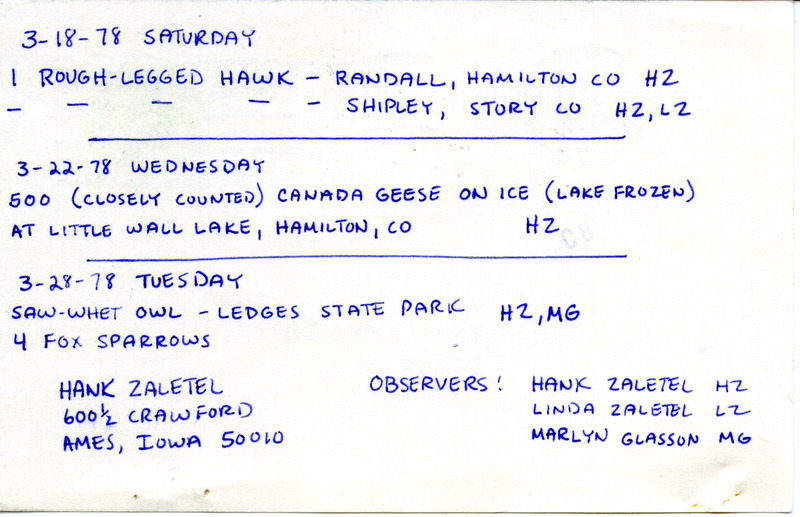 3-18-78 SATURDAY
1 ROUGH-LEGGED HAWK - RANDALL, HAMILTON CO HZ
- - - - - SHIPLEY, STORY CO HZ, LZ
3-22-78 WEDNESDAY
500 (CLOSELY COUNTED) CANADA GEESE ON ICE (LAKE FROZEN)
AT LITTLE WALL LAKE, HAMILTON, CO HZ
3-28-78 TUESDAY
SAW-WHET OWL - LEDGES STATE PARK HZ, MG
4 FOX SPARROWS
HANK ZALETEL
600½ CRAWFORD
AMES, IOWA 50010
OBSERVERS: HANK ZALETEL HZ
LINDA ZALETEL LZ
MARLYN GLASSON MG